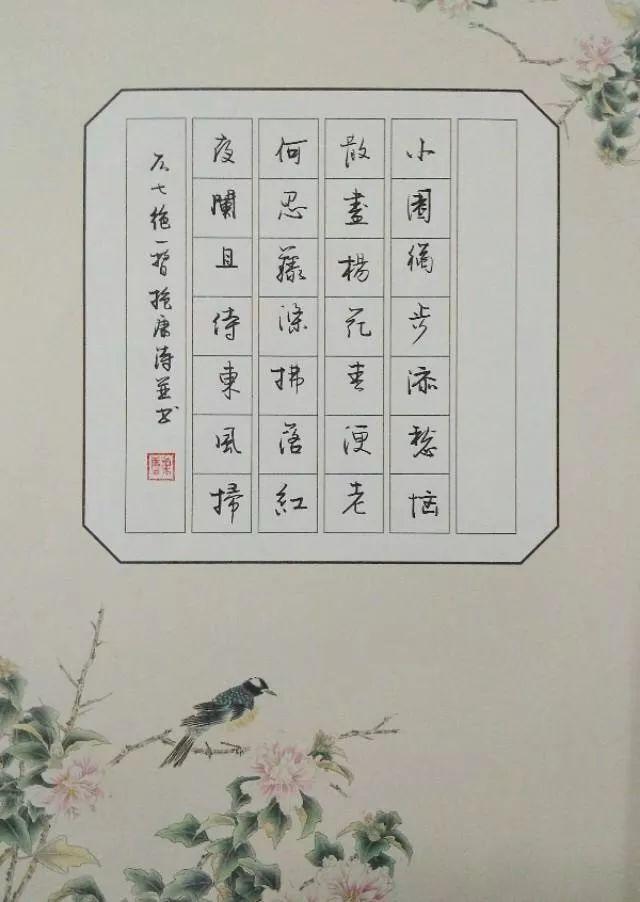 小園獨步添愁惱
散盡楊花春便老
何忍拂落紅
夜闌且待東風掃
仄七絕一首詩並書